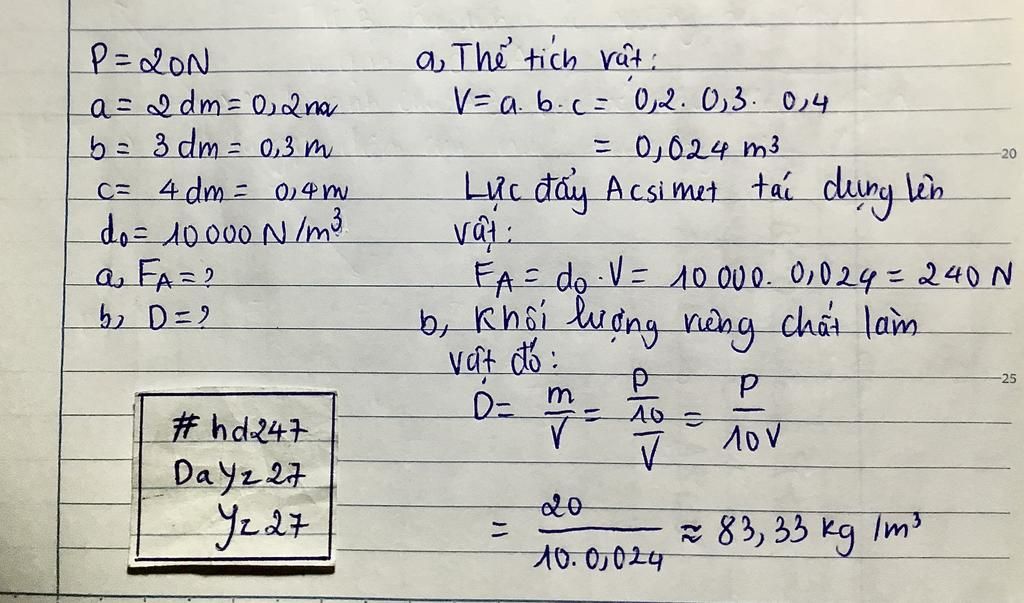 P = 20N
a = 2 dm = 0,2m
b = 3 dm = 0,3 m
c = 4 dm = 0,4m
d₀ = 10000 N/m³
a, F_A = ?
b, D = ?
# hd247
DaYz27
Yz27
a, Thể tích vật:
V = a. b. c = 0,2. 0,3. 0,4
= 0,024 m³
Lực đẩy Acsimet tác dụng lên
vật:
F_A = d₀ . V = 10 000. 0,024 = 240 N
b, Khối lượng riêng chất làm
vật đó:
D = m/V = (P/10)/V = P/10V
= 20/(10. 0,024) ≈ 83,33 kg/m³
20
25